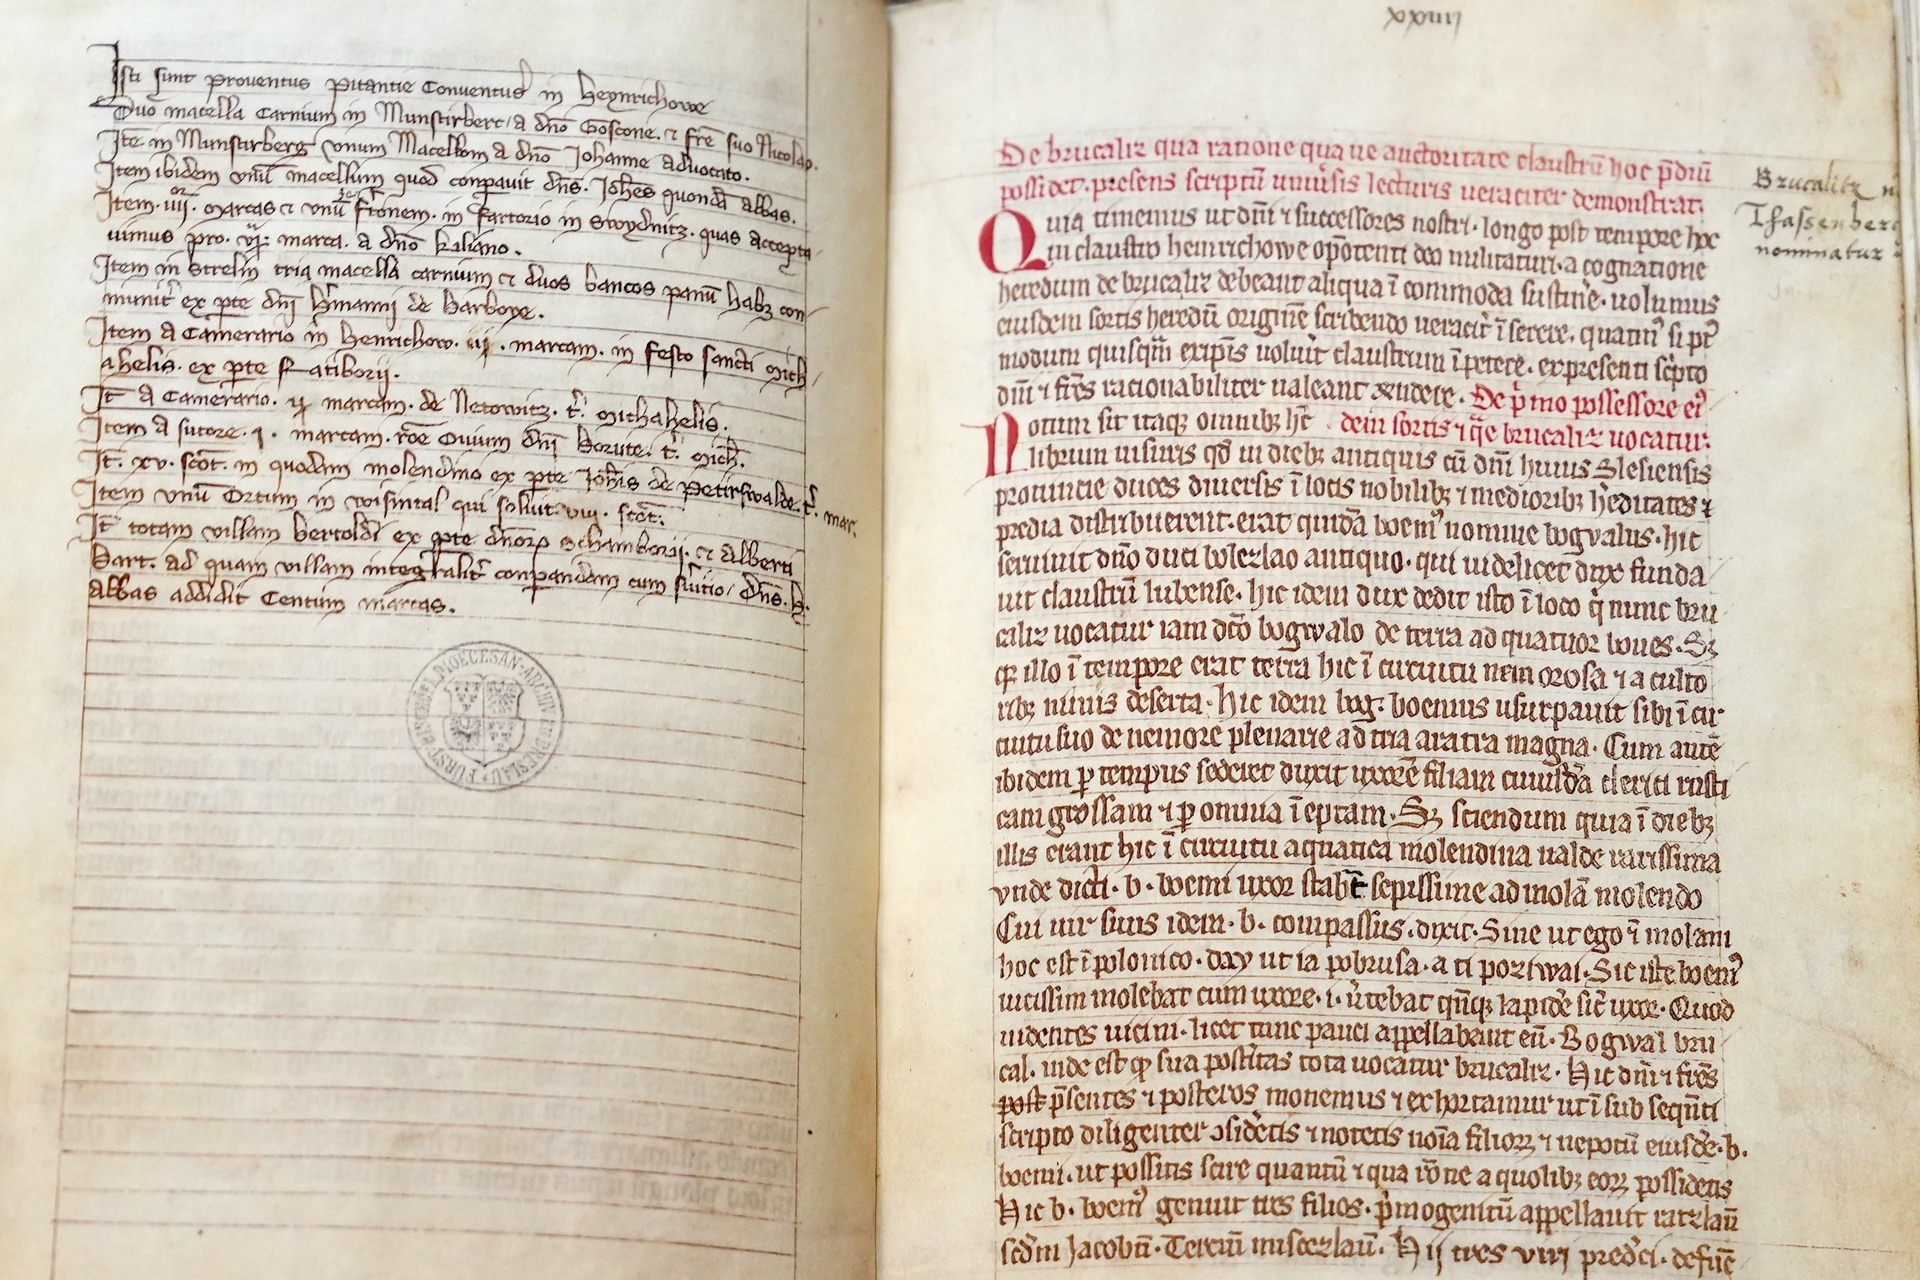 Isti sunt proventus pitantie Conventus in Heynrichowe
Duo macella Carnium in Munstirberc / a dño Goscone. ⁊ fre suo Nicolao.
Ite in Munstirberg vnum Macellom a dño Johanne advocato.
Item ibidem vnū macellum quod conpavit dñs. Johes quondā abbas.
Item. iiii. marcas ⁊ vnū frtonem. in factorio in Swydnitz. quas accepta
vimus pro. marca. a dño kiliano.
Item in Strelin tria macella carnium ⁊ duos bancos panū habꝫ con
munit ex pte dñi hmanni de Barboye.
Item a Camerario in Henrichow. marcam. in festo sancti mich
ahelis. ex pte Ratiborii.
It a Camerario. marcam. de Netowitz. t. michahelis.
Item a sutore. marcam. roe Ovium dñi Borute. t. mich.
It. xv. scot. in quodam molendino ex pte Johis de Petirswalde. t. mar.
Item vnū Ortum in voisintal qui soluit viii. scot.
It totam villam bertoldi ex pte dñorꝝ Schambori. ⁊ Alberti
Bart. ad quam villam integralit conpandam cum suitio / dñs. h.
abbas addidit Centum marcas.
FÜRSTBISCHÖFL. DIOECESAN-ARCHIV BRESLAU
xxiiii
De brucaliz qua ratione qua ue auctoritate claustrū hoc pdiū
possidet. presens scriptū uniūsis lecturis ueraciter demonstrat.
Quia timemus ut dñi ⁊ successores nostri. longo post tempore hoc
in claustro heinrichowe opotenti deo militaturi. a cognatione
heredum de brucaliz debeant aliqua ī commoda sustine. uolumus
eiusdem sortis heredū originē scribendo ueracit ī serere. quatin si pt
modum quisqm eripis uoluit claustrum ī petere. ex presenti scpto
dñi ⁊ fres racionabiliter ualeant rñdere. De pmo possessore ei
Notum sit itaqꝫ omnibꝫ hc dem sortis ⁊ qre brucaliz uocatur.
librum uisuris qd in diebꝫ antiquis cū dñi huius Slesiensis
prouincie duces diuersis ī locis nobilibꝫ ⁊ mediocribꝫ heditates ⁊
predia distribuerent. erat quidā boem nomine bogwalus. hic
seruiuit dño duci bolezlao antiquo. qui uidelicet dux funda
uit claustrū lubense. hic idem dux dedit isto ī loco q nunc bru
caliz uocatur iam dcto bogwalo de terra ad quatuor boues. Sꝫ
qꝫ illo ī tempore erat terra hic ī circuitu nemorosa ⁊ a culto
ribꝫ nimis deserta. hic idem bog. boemus usurpauit sibi ī cir
cuitu suo de nemore plenarie ad tria aratra magna. Cum autē
ibidem p tempus sederet duxit uxorē filiam cuiusdā clerici rusti
cam grossam ⁊ p omnia ī eptam. Sꝫ sciendum quia ī diebꝫ
illis erant hic ī circuitu aquatica molendina ualde rarissima
vnde dicti. b. boemi uxor stabat sepissime ad molā molendo
Cui uir suus idem. b. compassus. dixit. Sine ut ego ī molam
hoc est ī polonico. day ut ia pobrusa. a ti poziwai. Sic iste boem
uicissim molebat cum uxore. i. utebat qñqꝫ lapidē sic uxor. Quod
uidentes uicini. licet tunc pauci appellabant eū. Bogwal bru
cal. inde est qꝫ sua posteritas tota uocatur brucaliz. Hic dñi ⁊ fres
post psentes ⁊ posteros monemus ⁊ exhortamur ut ī sub sequti
scripto diligenter ↄsidetis ⁊ notetis noīa filiorꝝ ⁊ nepotū eiusde. b.
boemi. ut possitis scire quantū ⁊ qua rōne a quolibꝫ eorꝝ possidetis
Hic b. boem genuit tres filios. pmogenitū appellauit razlaū
scdm Jacobū. Terciū miscezlaū. Hij tres viri predci. defūc
Brucalitz n
Thassenberg
nominatur